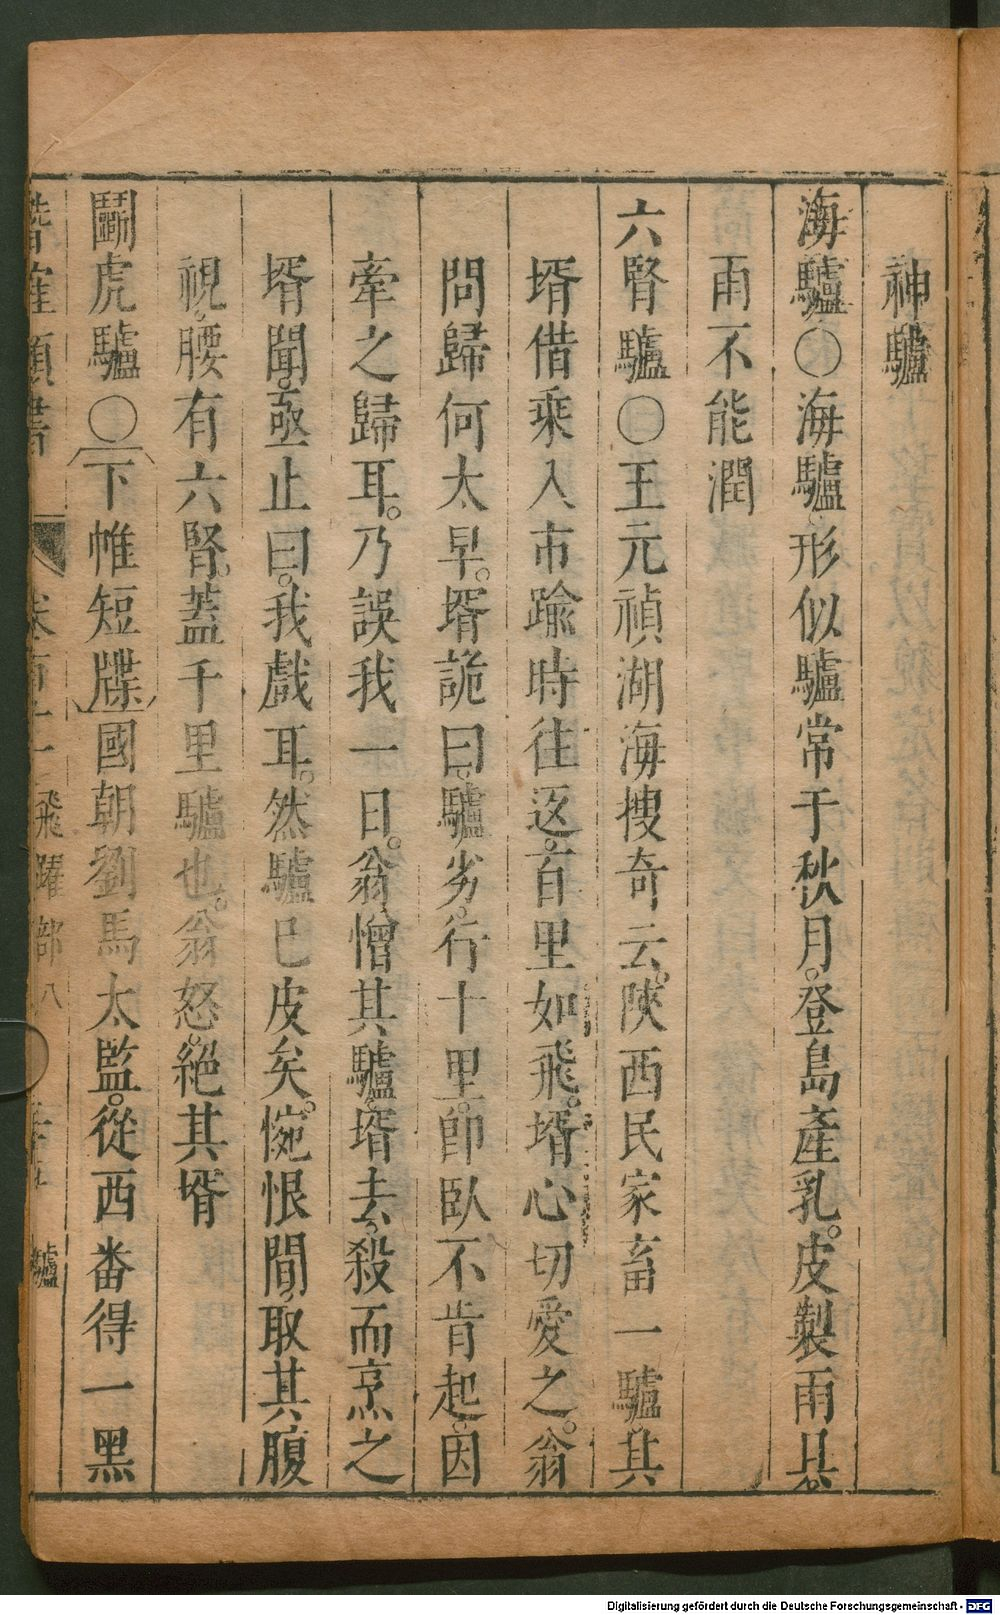 神驢
海驢○海驢。形似驢常于秋月。登島產乳。皮製雨具。
雨不能潤
六腎驢○王元禎湖海搜奇云。陝西民家畜一驢其
壻借乘入市踰時往返。百里如飛。壻心切愛之。翁
問歸何太早。壻詭曰。驢劣。行十里。卽臥不肯起。因
牽之歸耳。乃誤我一日。翁憎其驢。壻去。殺而烹之
壻聞。亟止曰。我戲耳。然驢已皮矣。惋恨間。取其腹
視。腰有六腎。蓋千里驢也。翁怒。絕其壻
鬭虎驢○下帷短牒國朝劉馬太監。從西番得一黑
類書 飛躍部八 驢
Digitalisierung gefördert durch die Deutsche Forschungsgemeinschaft - DFG